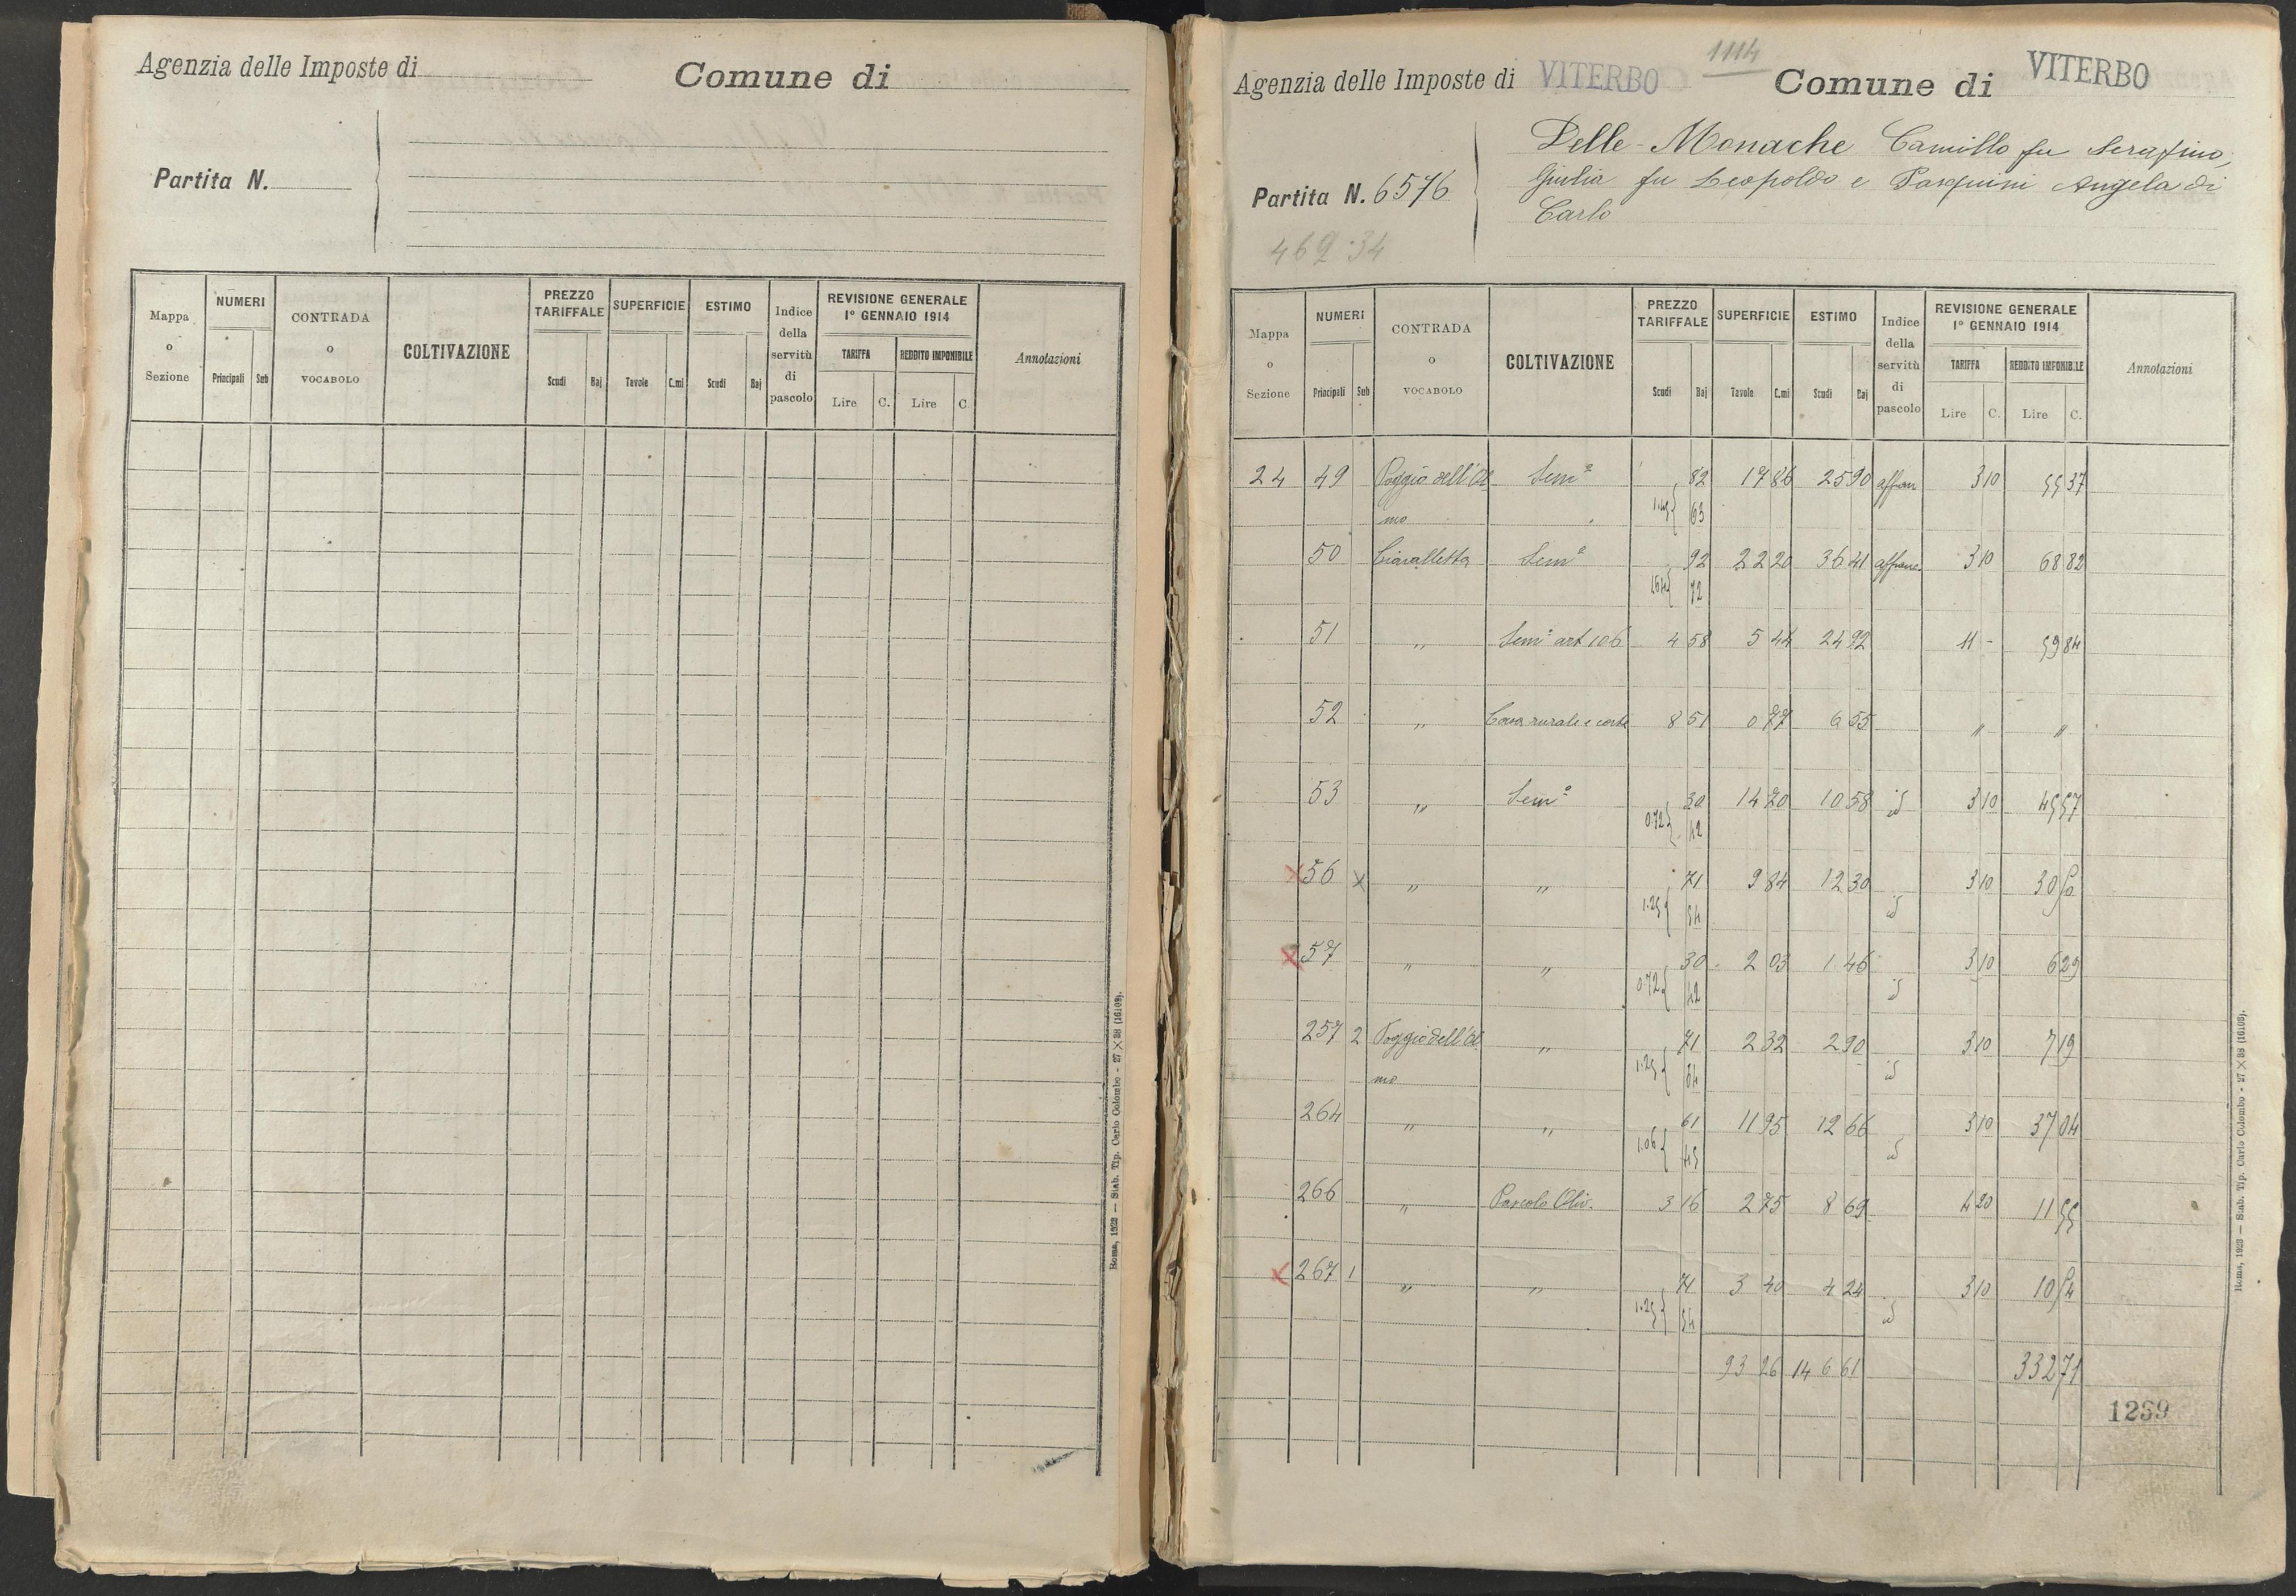 Agenzia delle Imposte di
Comune di
Partita N.
Mappa o Sezione
NUMERI
Principali Sub
CONTRADA o VOCABOLO
COLTIVAZIONE
PREZZO TARIFFALE
Scudi Baj
SUPERFICIE
Tavole C.mi
ESTIMO
Scudi Baj
Indice della servitù di pascolo
REVISIONE GENERALE
1° GENNAIO 1914
TARIFFA REDDITO IMPONIBILE
Lire C. Lire C.
Annotazioni
Roma, 1923 — Stab. Tip. Carlo Colombo - 27 × 38 (16103).
1114
Agenzia delle Imposte di VITERBO Comune di VITERBO
Partita N. 6576
469.34
Delle Monache Camillo fu Serafino,
Giulia fu Leopoldo e Pasquini Angela di
Carlo
Mappa o Sezione
NUMERI
Principali Sub
CONTRADA o VOCABOLO
COLTIVAZIONE
PREZZO TARIFFALE
Scudi Baj
SUPERFICIE
Tavole C.mi
ESTIMO
Scudi Baj
Indice della servitù di pascolo
REVISIONE GENERALE
1° GENNAIO 1914
TARIFFA REDDITO IMPONIBILE
Lire C. Lire C.
Annotazioni
24 49 Poggio dell'Ol Semo 82 17 86 25 90 affran 3 10 55 37
mo 1.45 { 63
50 Ciavalletta Semo 92 22 20 36 41 affranc. 3 10 68 82
1.64 { 72
51 " Semo art 106 4 58 5 44 24 92 11 - 59 84
52 " Casa rurale e corte 8 51 0 77 6 55 " "
53 " Semo 30 14 70 10 58 id 3 10 45 57
0.72 { 42
x 56 x " " 71 9 84 12 30 id 3 10 30 50
1.25 { 54
x 57 " " 30 2 03 1 46 id 3 10 6 29
0.72 { 42
257 2 Poggio dell'Ol " 71 2 32 2 90 id 3 10 7 19
mo 1.25 { 54
264 " " 61 11 95 12 66 id 3 10 37 04
1.06 { 45
266 " Pascolo Oliv. 3 16 2 75 8 69 4 20 11 55
x 267 1 " " 71 3 40 4 24 id 3 10 10 54
1.25 { 54
93 26 146 61 332 71
1239
Roma, 1923 — Stab. Tip. Carlo Colombo - 27 × 38 (16103).